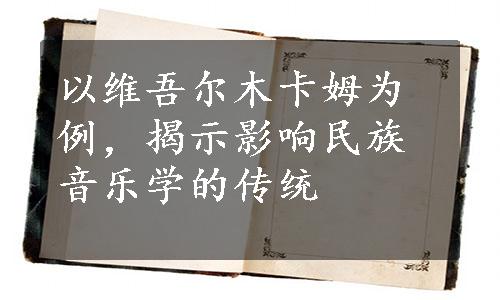 以维吾尔木卡姆为
例，揭示影响民族
音乐学的传统